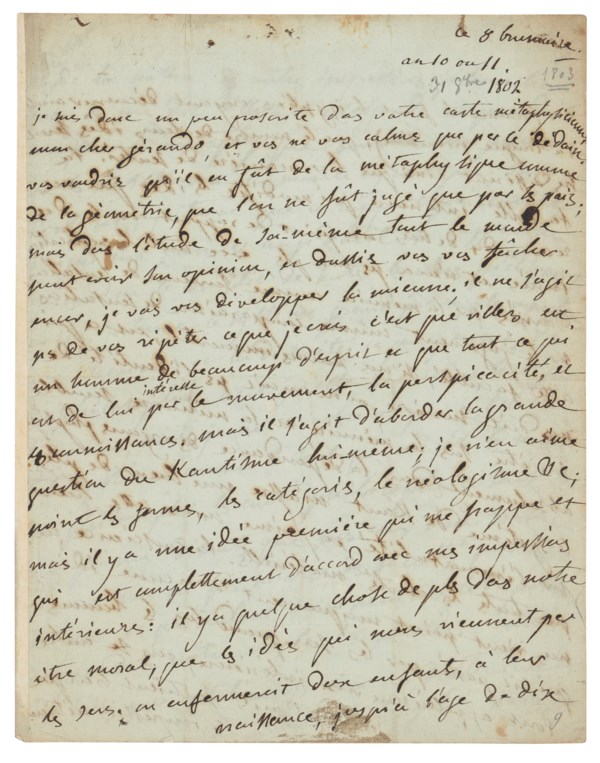 ce 8 brumaire.
an 10 ou 11.
1803
31 8bre 1802
je suis donc un peu proscrite dans votre carte métaphysicienne
mon cher gérando, et vos ne vos calmez que par le dédain.
vos voudriez qu'il en fût de la métaphysique comme
de la géométrie, que l'on ne fût jugé que par ses pairs;
mais dans l'étude de soi-même tout le monde
peut avoir son opinion, et dussiez vos vos fâcher
encor, je vais vos développer la mienne. il ne s'agit
ps de vos répéter ce que je crois c'est que villers est
un homme de beaucoup d'esprit et que tout ce qui
est de lui intéresse par le mouvement, la perspicacité, et
connoissances. mais il s'agit d'aborder la grande
question du Kantisme lui-même; je n'en aime
point les formes, les catégories, le néologisme &c;
mais il y a une idée première qui me frappe et
qui est complettement d'accord avec mes impressions
intérieures: il y a quelque chose de pls dans notre
être moral, que les idées qui nous viennent par
les sens. on enfermeroit deux enfants, à leur
naissance, jusqu'à l'age de dix
9